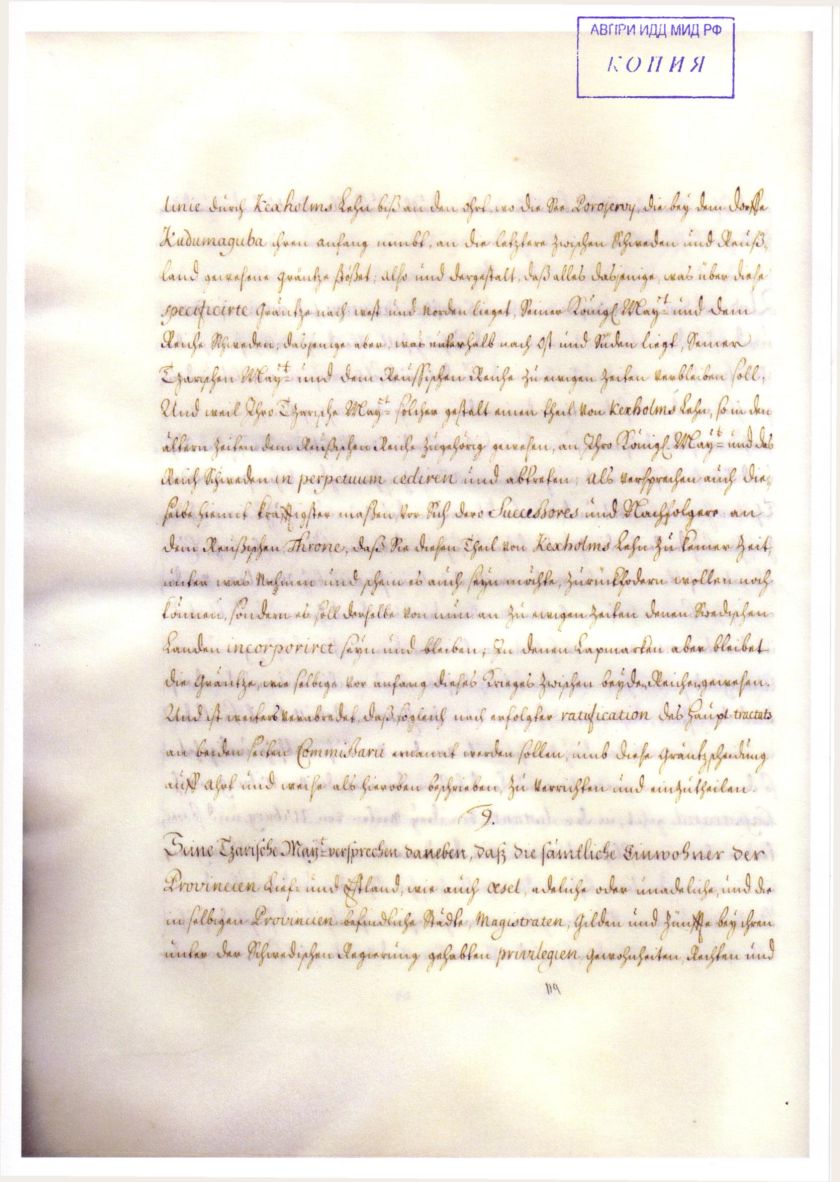 АВПРИ ИДД МИД РФ
КОПИЯ
linie durch Kexholms Lehn biß an den ohrt wo die See Porojerwy, die bey dem dorffe
Kudumaguba ihren anfang nimbt, an die letztere zwischen Schweden und Reuß-
land gewesene Gräntze stößet; also und dergestalt, daß alles dasjenige, was über diese
specificirte Gräntze nach west und Norden lieget, Seiner Königl. Mayt. und dem
Reiche Schweden; dasjenige aber, was unterhalb nach Ost und Süden liegt, Seiner
Tzarischen Mayt. und dem Reussischen Reiche zu ewigen Zeiten verbleiben soll.
Und weil Ihro Tzarische Mayt. solcher gestalt einen theil von Kexholms Lehn, so in den
ältern Zeiten dem Reußischen Reiche zugehörig gewesen, an Ihro Königl. Mayt. und das
Reich Schweden in perpetuum cediren und abtreten; als versprechen auch die-
selbe hiemit kräfftigster maßen, vor Sich dero Successores und Nachfolgere an
dem Reußischen Throne, daß Sie diesen Theil von Kexholms Lehn zu keiner Zeit,
unter was Nahmen und schein es auch seyn möchte, zurückfodern wollen noch
können, sondern es soll derselbe von nun an zu ewigen Zeiten denen Swedischen
Landen incorporiret seyn und bleiben; In denen Lapmarken aber bleibet
die Gräntze, wie selbige vor anfang dieses Krieges zwischen beyde Reiche gewesen.
Und ist weiters verabredet, daß sogleich nach erfolgter ratification des Haupt tractats
an beiden seiten Commissarii ernannt werden sollen, umb diese Gräntzscheidung
auff ahrt und weise als hieroben beschrieben, zu verrichten und einzutheilen.
9.
Seine Tzarische Mayt. versprechen daneben, daß die sämtliche Einwohner der
Provincien Lief- und Estland, wie auch Oesel, adeliche oder unadeliche, und die
in selbigen Provincien befindliche Städte, Magistraten, Gilden und Zünffte bey ihren
unter der Schwedischen Regierung gehabten privilegien, Gewohnheiten, Rechten und
119